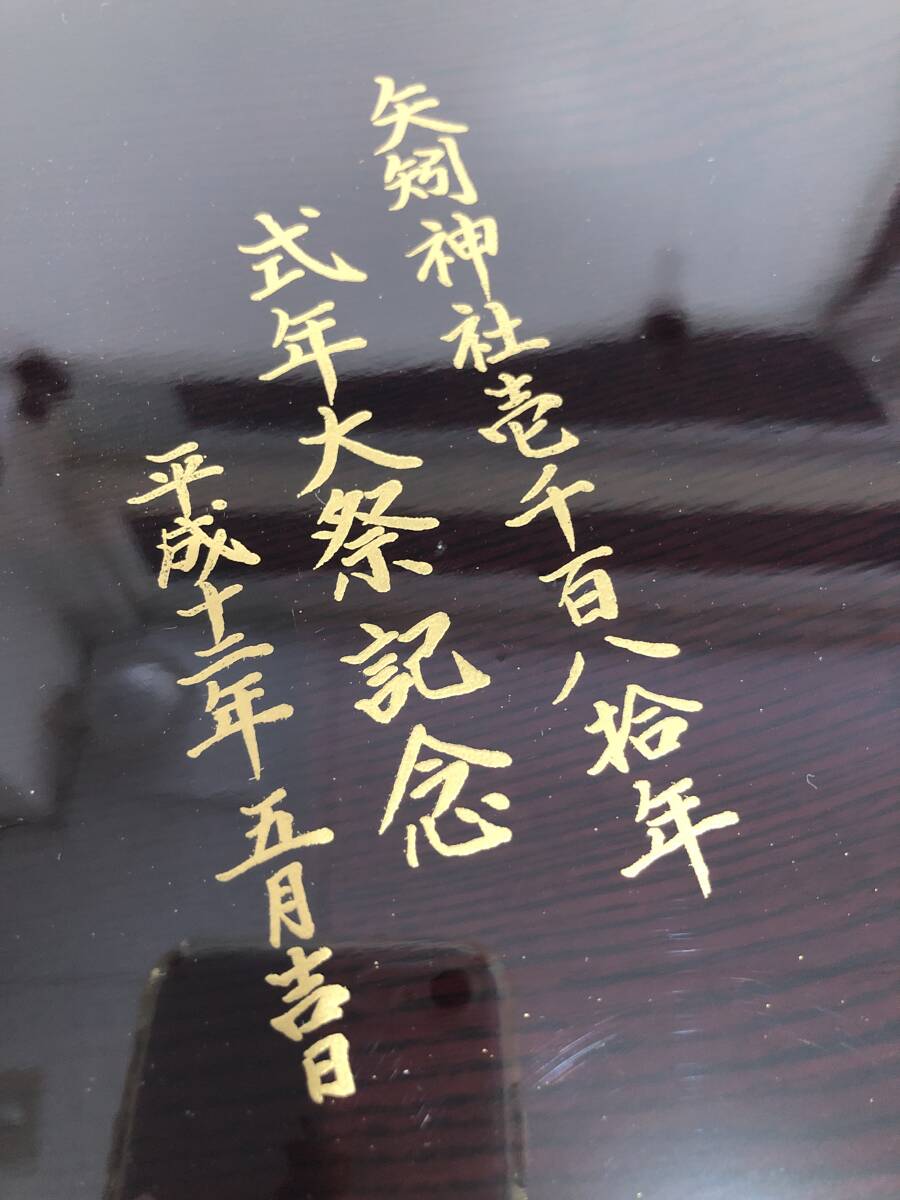 矢矧神社壱千百八拾年
式年大祭記念
平成十二年 五月吉日